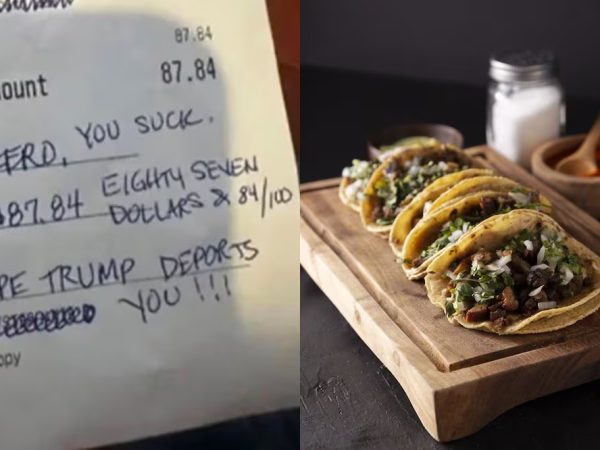 87.84
ount 87.84
ERD, YOU SUCK.
$87.84 EIGHTY SEVEN
DOLLARS & 84/100
PE TRUMP DEPORTS
YOU!!!
opy